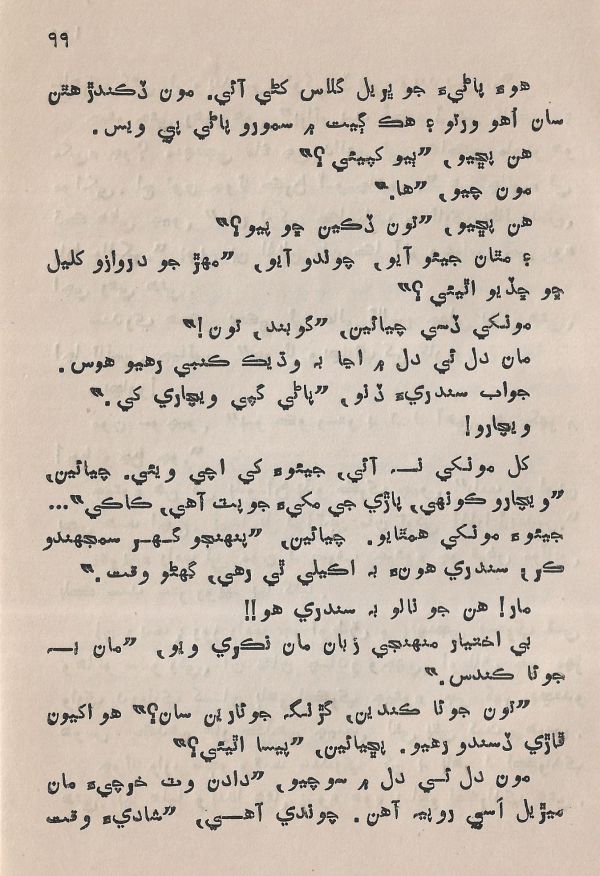 ۹۹
هوءِ پاڻيءَ جو ڀريل گلاس کڻي آئي. مون ڏڪندڙ هٿن
سان اُهو ورتو ۽ هڪ ڳيت ۾ سمورو پاڻي پي ويس.
هن پڇيو، ”ٻيو کپيئي؟“
مون چيو، ”ها.“
هن پڇيو، ”تون ڏڪين ڇو پيو؟“
۽ مٿان جيئو آيو، چوندو آيو، ”مهڙ جو دروازو کليل
ڇو ڇڏيو اٿيئي؟“
مونکي ڏسي چيائين، ”گوبند، تون!“
مان دل ئي دل ۾ اڃا بہ وڌيڪ ڪنبي رهيو هوس.
جواب سندريءَ ڏنو، ”پاڻي کپي ويچاري کي.“
ويچارو!
کل مونکي نہ آئي، جيئوءَ کي اچي ويئي. چيائين،
”ويچارو ڪونهي، پاڙي جي مکيءَ جو پٽ آهي، ڪاڪي“...
جيئوءَ مونکي همٿايو. چيائين، ”پنهنجو گهر سمجهندو
ڪر، سندري هونءَ بہ اڪيلي ٿي رهي، گهڻو وقت.“
مار! هن جو نالو بہ سندري هو!!
بي اختيار منهنجي زبان مان نڪري ويو، ”مان بہ
جوئا کندس.“
”تون جوئا کندين، گڙنگ جوئارين سان؟“ هو اکيون
ڦاڙي ڏسندو رهيو. پڇيائين، ”پيسا اٿيئي؟“
مون دل ئي دل ۾ سوچيو، ”دادن وٽ خرچيءَ مان
ميڙيل اَسي روپيہ آهن. چوندي آهي، ”شاديءَ وقت